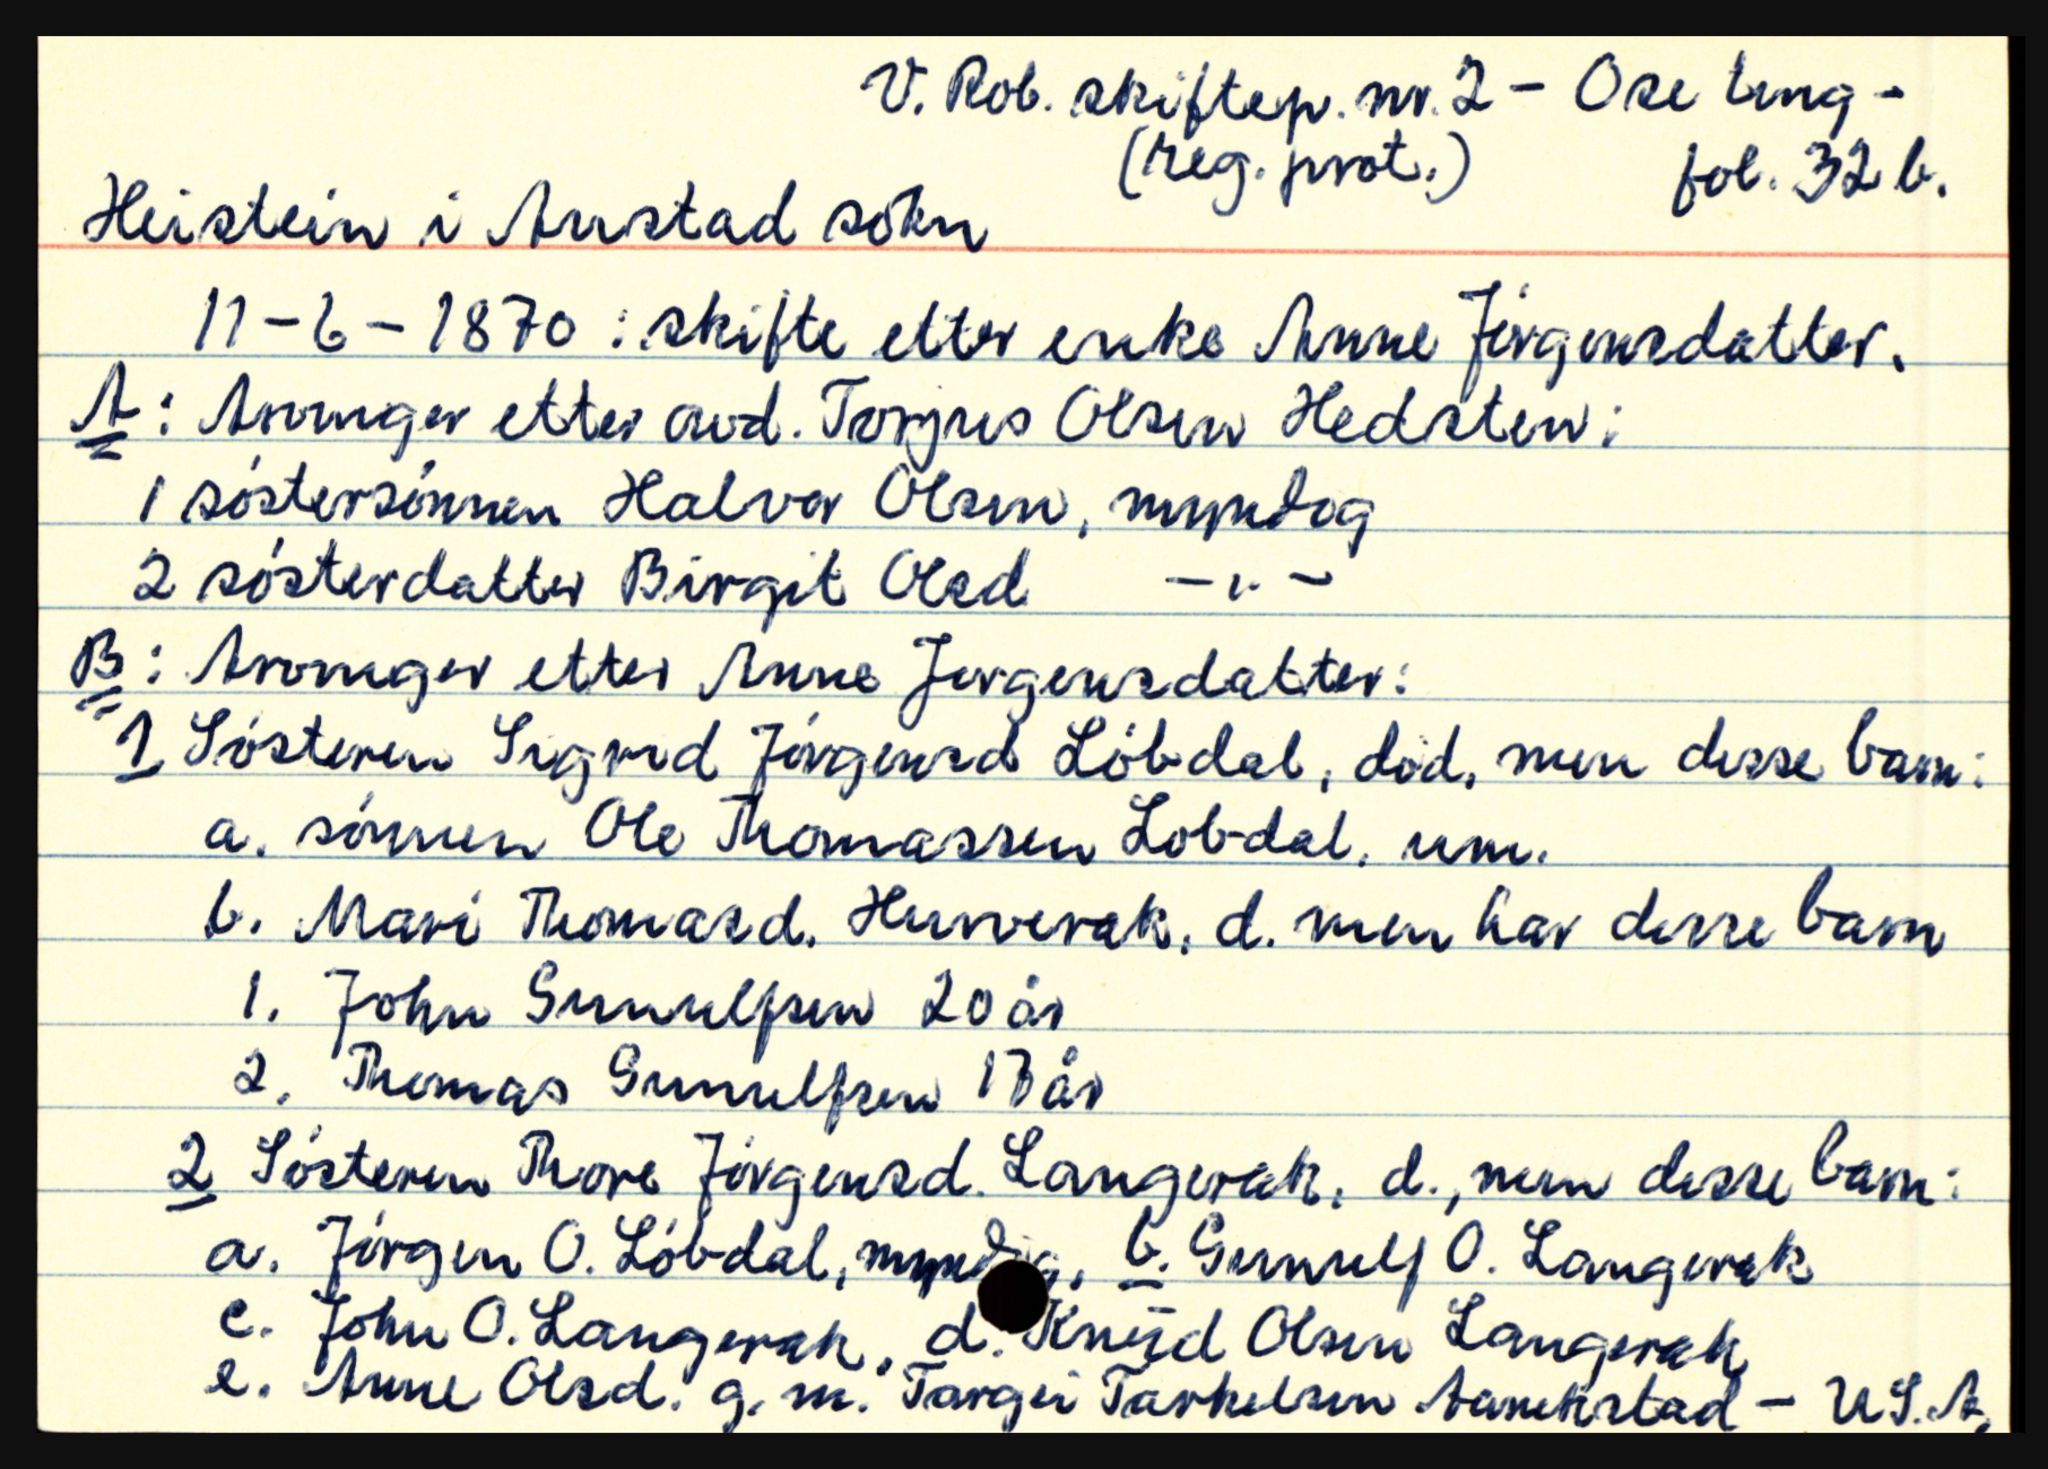 V. Rob. skiftep. nr. 2 - Ose ting -
(reg. prot.) fol. 32 b.
Heistein i Austad sokn
11-6-1870 : skifte etter enke Anne Jörgensdatter.
A : Arvinger etter avd. Torjus Olsen Hedsten:
1 söstersönnen Halvor Olsen, myndig
2 sösterdatter Birgit Olsd - " -
B : Arvinger etter Anne Jorgensdatter:
1 Sösteren Sigrid Jörgensd Löbdal, död, men disse barn:
a. sönnen Ole Thomassen Lobdal, um.
b. Mari Thomasd. Hunverak, d. men har disse barn
1. John Gunulfsen 20 år
2. Thomas Gunulfsen 17 år
2 Sösteren Thore Jörgensd. Langerak, d., men disse barn:
a. Jörgen O. Löbdal, myndig, b. Gunulf O. Langerak
c. John O. Langerak, d. Knud Olsen Langerak
e. Anne Olsd. g. m. Targei Tarkelsen - U.S.A.